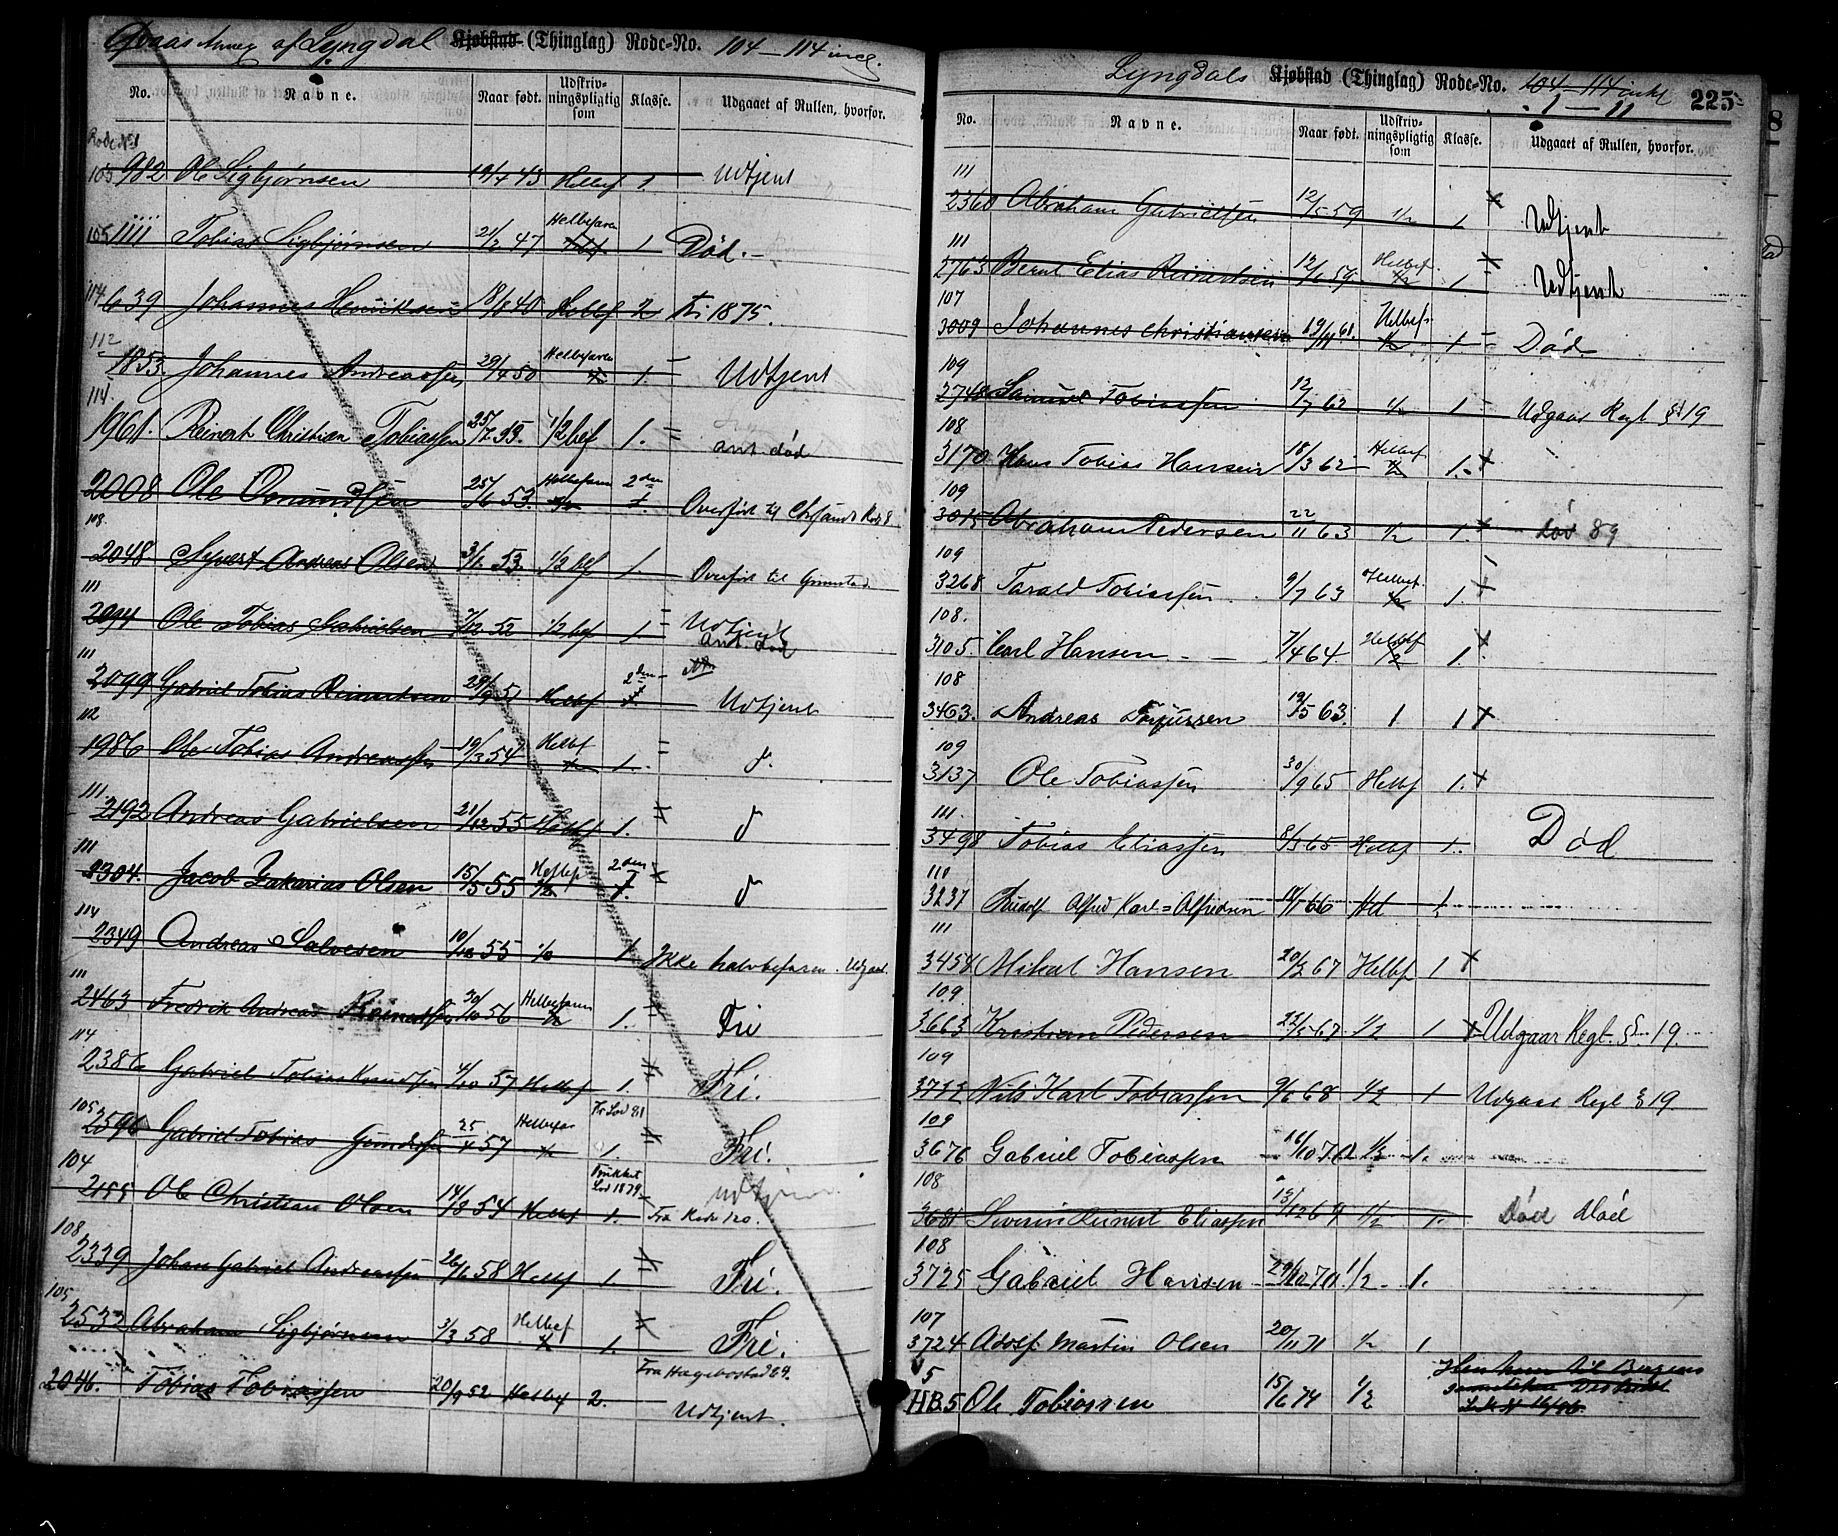 Annex af Lyngdal Kjøbstad (Thinglag) Rode-No. 104 — 114 incl.
No. Navne. Naar født. Udskrivningspligtig som Klasse. Udgaaet af Rullen, hvorfor.
Rode No 1
105 982 Ole Sigbjørnsen 43 Helbef 1. Udtjent
105 1111 Tobias Sigbjørnsen 21/2 47 Helbefaren 1. Død.
114 639 Johannes Henriksen 40 Helbef fri 1875.
112
1853 Johannes Andreassen 29/4 50 Helbefaren 1. Udtjent
114
1961. Reinert Christian Tobiassen 25/7 53. 1/2 bef 1. ant. død
2008 Ole 25/6 53. Helbefaren 2den Overført til
108.
2048 Syvert Andreas Olsen 53. 1/2 bef 1. Overført til Grimstad
111
2094 Ole Tobias Gabrielsen 7/12 52 1/2 bef 1. Udtjent
Ant. død
111
2099 Gabriel Tobias Reinertsen 51 Helbf 2den Udtjent
112
1986 Ole Tobias Andreassen 19/3 54 Helbf 1.
111.
2192 Andreas Gabrielsen 21/12 55 Helbf 1.
111
2304. Jacob Zakarias Olsen 15/5 55 Helbef 2den
114
2349 Andreas Salvesen 10/12 55 1. Ikke halvbefaren. Udgaar
111
2463 Fredrik Andreas 30/10 56 Helbefaren 1. Fri
114
2386 Gabriel Tobias Knudsen 4/10 57 Helbef 1. Fri.
105 Fr Lod 81
2596 Gabriel Tobias 25/4 57 Helbefar 1. Fri.
104 Trukket Lod 1879
2155 Ole Christian Olsen 14/8 54 Helbf 1. Udtjent
108 Fra Rode 120.
2339 Johan Gabriel Andreassen 58 Helbf 1. Fri.
105
2532 Abraham Sigbjørnsen 3/3 58 Helbef 1. Fri.
2046. Tobias Tobiassen 20/9 52 Helbef 2. Fra Hægebostad 69.
Udtjent.
Lyngdals Kjøbstad (Thinglag) Rode-No. 104 — 114 inkl 225
1 — 11
No. Navne. Naar født. Udskrivningspligtig som Klasse. Udgaaet af Rullen, hvorfor.
111
2360 Abraham Gabrielsen 12/5 59 1/2 1. Udtjent
111
2763 Bernt Elias Reinertsen 12/6 59 Helbef. 1/2 1 Udtjent
107
3009 Johannes Christiansen 19/11 61. Helbef. 1/2 1 Død
109
2748 Samuel Tobiassen 12/7 62 1/2 1 Udgaar Regl § 19
108.
3170 Hans Tobias Hansen 18/3 62 Helbef 1/2 1.
109
3015 Abraham Pedersen 22/11 63 1/2 1. død 89
109
3268 Tarald Tobiassen 9/7 63 Helbef 1/2 1.
108.
3105 Carl Hansen 7/4 64 Helbef 1/2 1.
108
3463. Andreas 19/5 63 1 1
109
3137 Ole Tobiassen 30/9 65 Helbf 1.
111.
3498 Tobias Eliassen 8/5 65 Helbf 1. Død
110
3237 Rudolf Alfred Karl=Alfredsen 66
111
3458 Mikal Hansen 20/3 67 Helbf 1
109.
3663 Kristian Pedersen 22/5 67 1/2 1 Udgaar Regl. § 19.
109
Nils Karl Tobiassen 9/6 68 1/2 1 Udgaar Regl § 19
109
3676 Gabriel Tobiassen 16/10 70 1/2 1.
108
3681 Severin Reinert Eliassen 13/12 69 1/2 1. Død Død
108
3725 Gabriel Hansen 70 1/2 1.
107
3724 Adolf Martin Olsen 20/11 71 1/2 1
5
HB.5 Ole Tobiassen 15/6 74 1/2 til Bergens
Distrikt